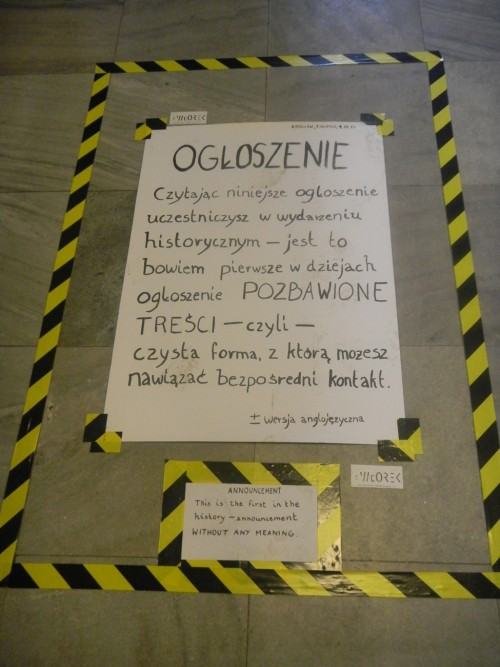 OGŁOSZENIE
Czytając niniejsze ogłoszenie
uczestniczysz w wydarzeniu
historycznym — jest to
bowiem pierwsze w dziejach
ogłoszenie POZBAWIONE
TREŚCI — czyli —
czysta forma, z którą możesz
nawiązać bezpośredni kontakt.
± wersja anglojęzyczna
ANNOUNCEMENT
This is the first in the
history — announcement
WITHOUT ANY MEANING.